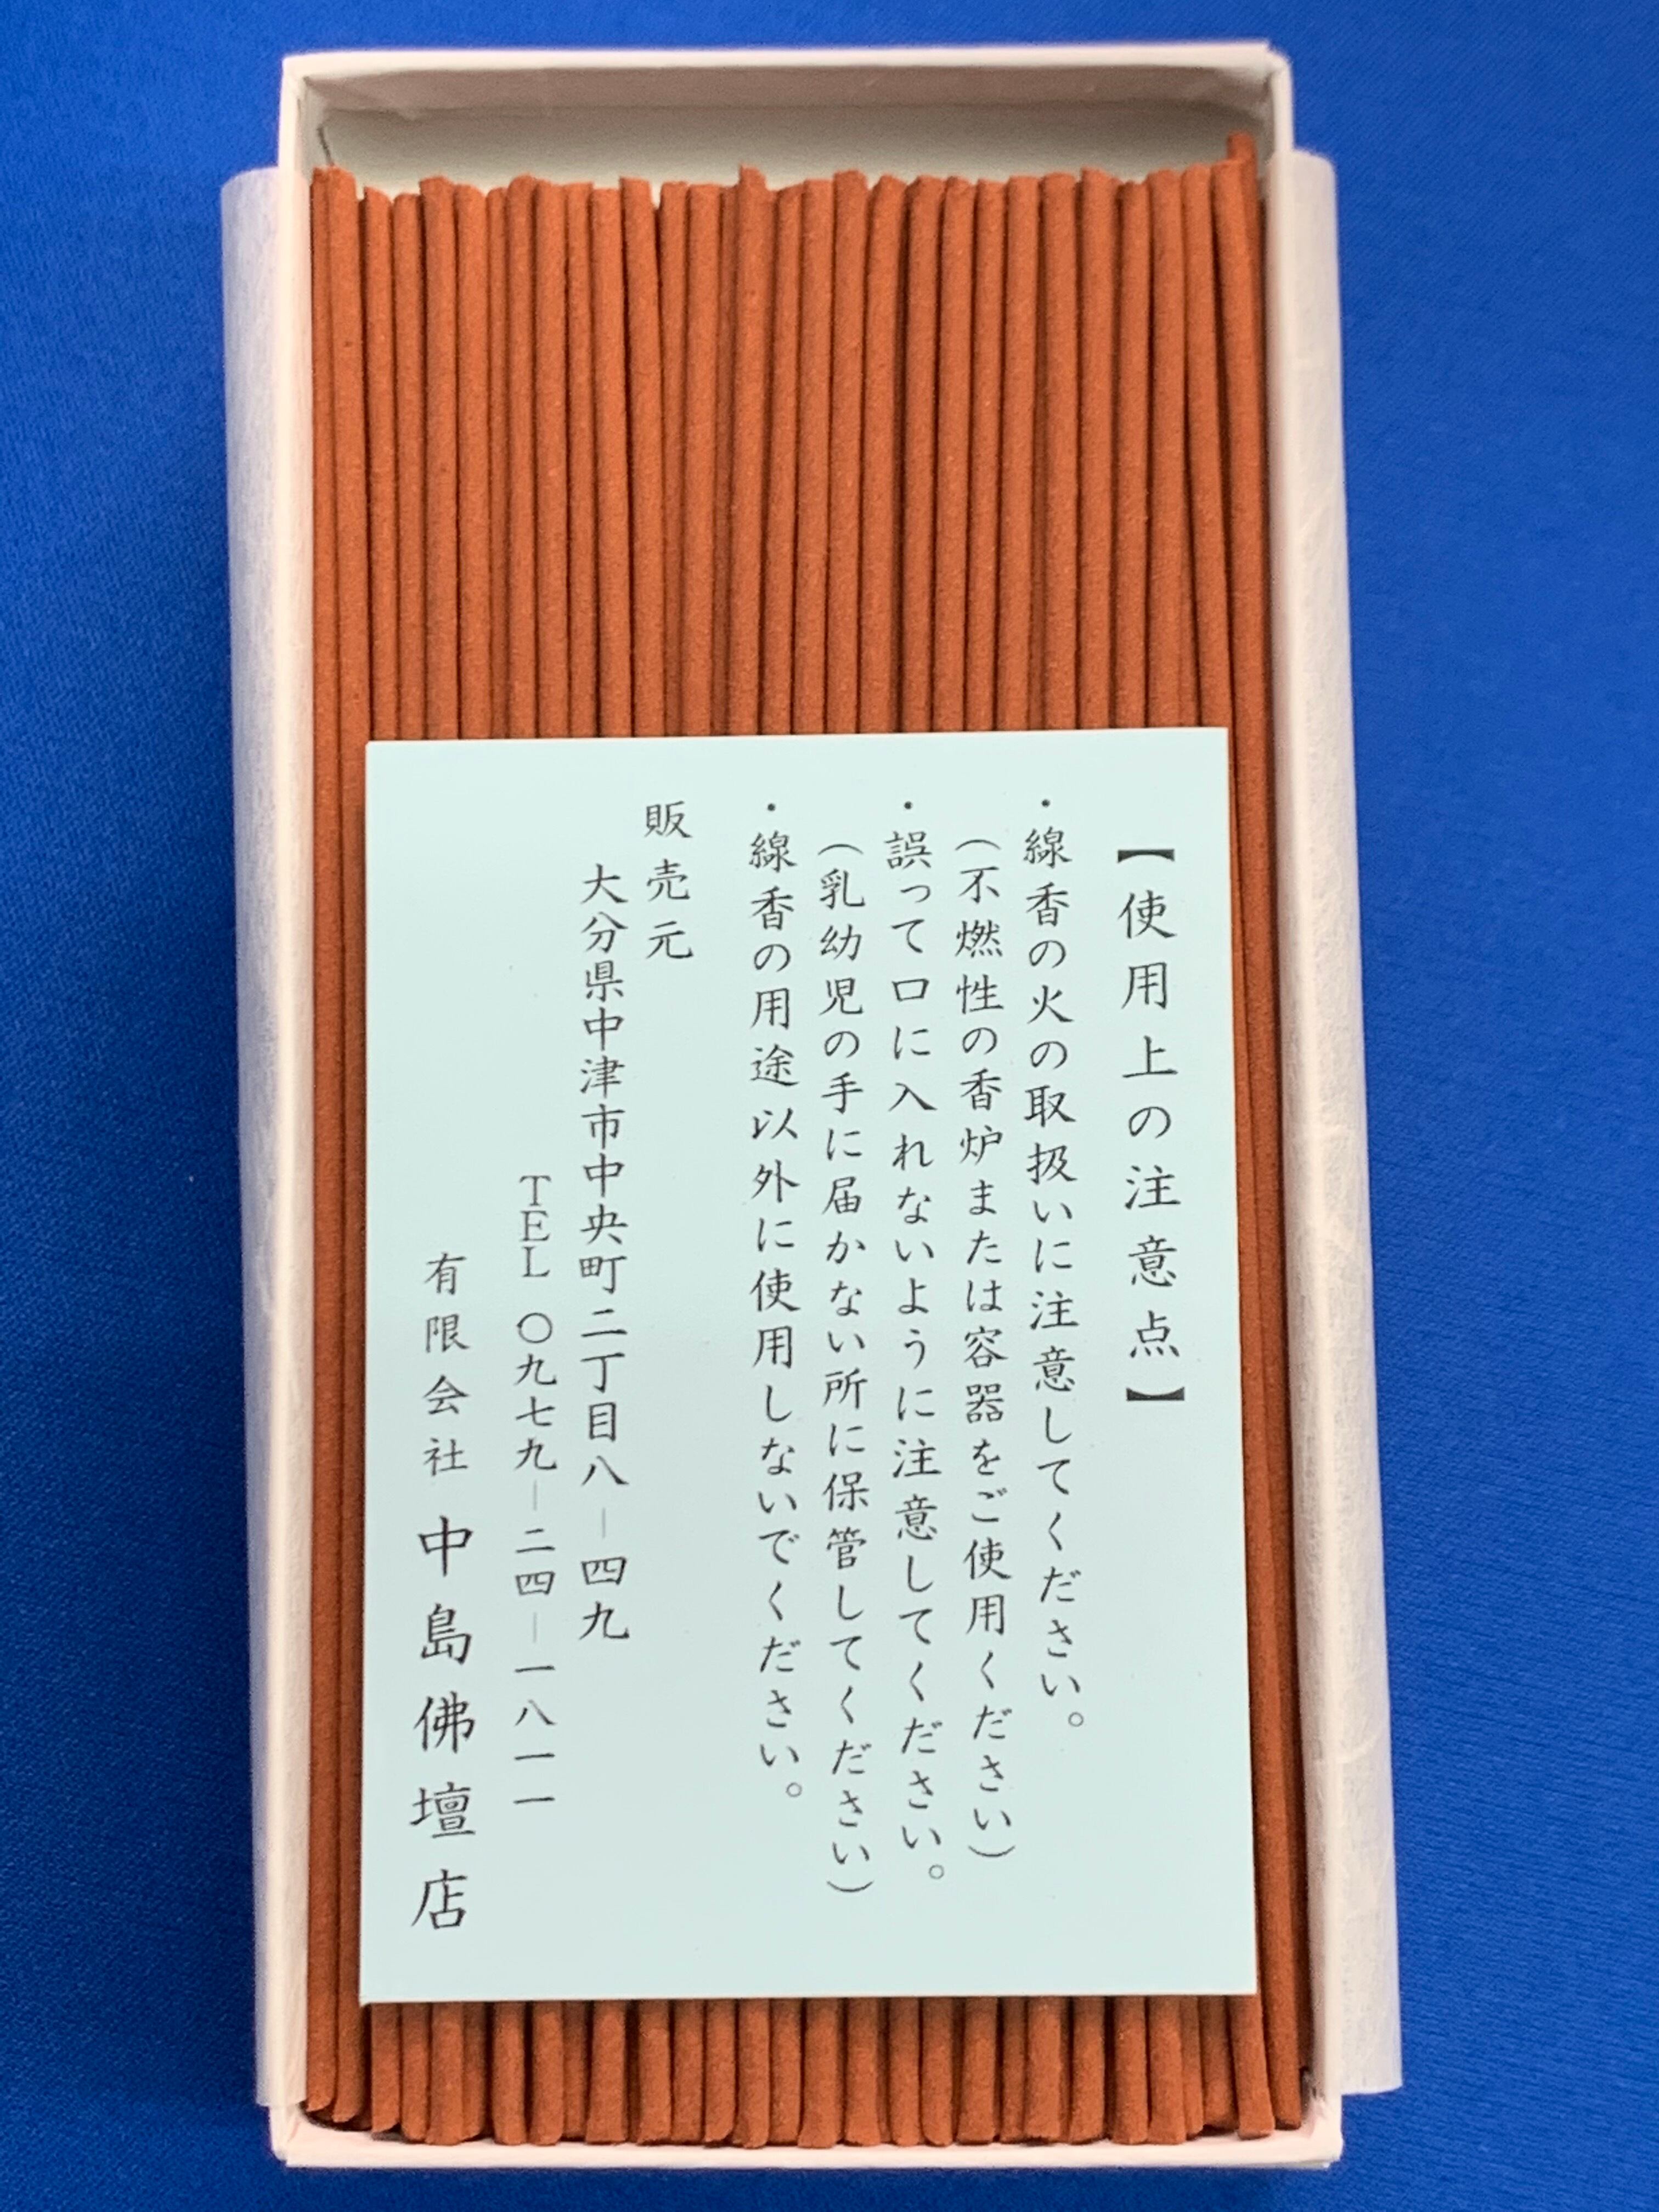 【使用上の注意点】
・線香の火の取扱いに注意してください。
（不燃性の香炉または容器をご使用ください）
・誤って口に入れないように注意してください。
（乳幼児の手に届かない所に保管してください）
・線香の用途以外に使用しないでください。
販売元
大分県中津市中央町二丁目八－四九
ＴＥＬ 〇九七九－二四－一八一一
有限会社 中島佛壇店